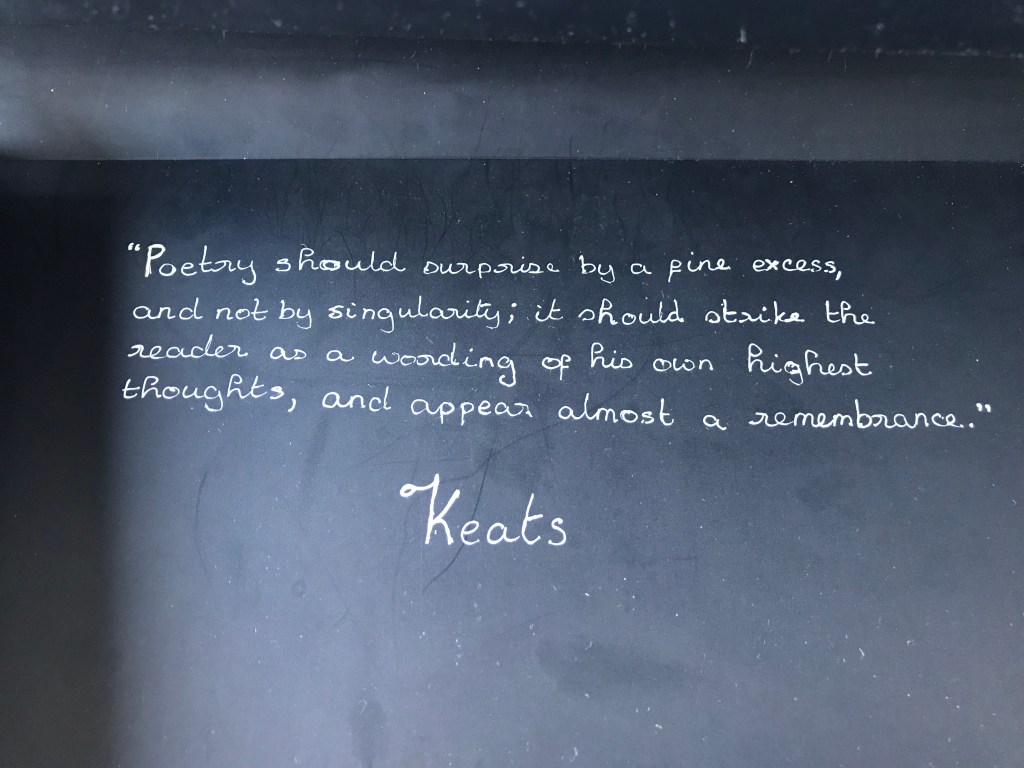 “Poetry should surprise by a fine excess,
and not by singularity; it should strike the
reader as a wording of his own highest
thoughts, and appear almost a remembrance.”
Keats